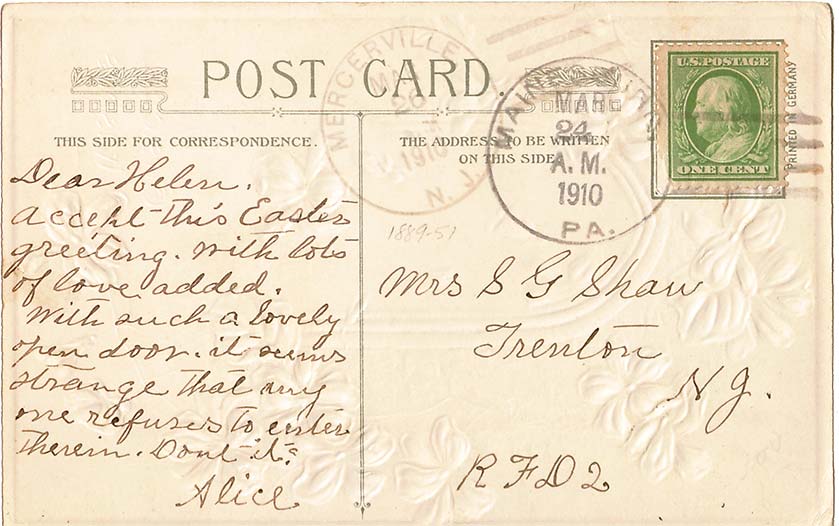 POST CARD.
THIS SIDE FOR CORRESPONDENCE.
THE ADDRESS TO BE WRITTEN
ON THIS SIDE
MERCERVILLE
MAR
26
1910
N. J.
MAR
24
A. M.
1910
PA.
U.S. POSTAGE
ONE CENT
PRINTED IN GERMANY
1889-51
Dear Helen.
accept this Easter
greeting. with lots
of love added.
With such a lovely
open door. it seems
strange that any
one refuses to enter
therein. Dont it?
Alice
Mrs S G Shaw
Trenton
N J.
R F D 2